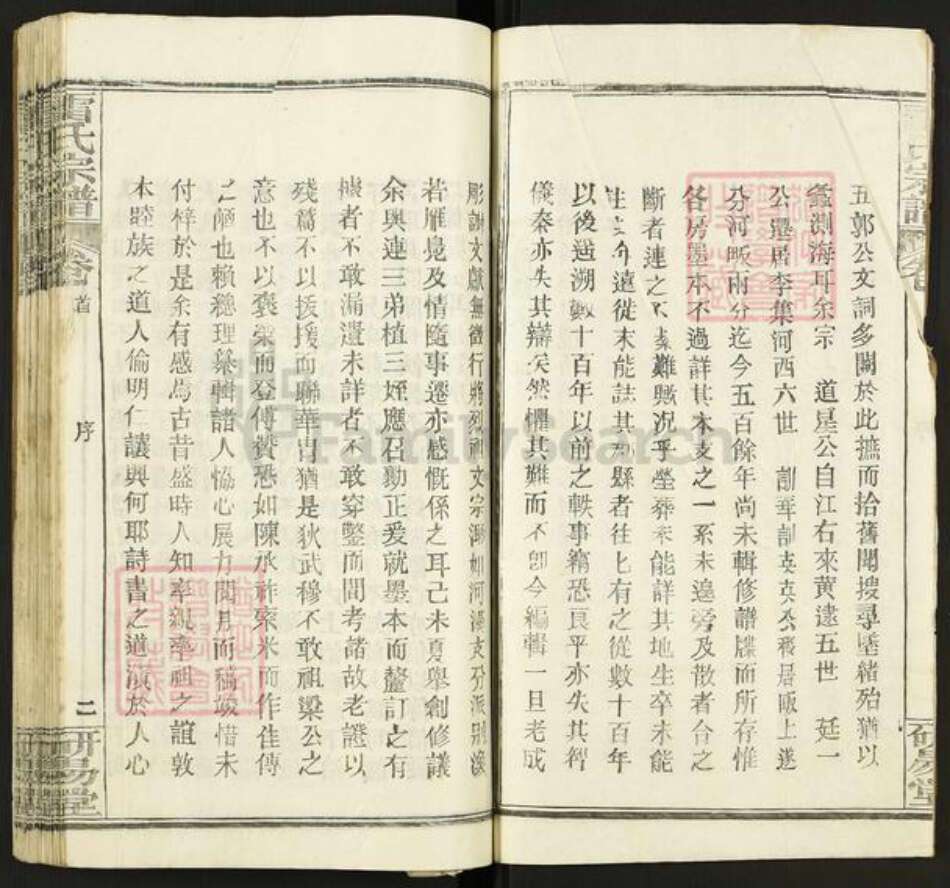 五郭公文詞多闕於此摭而拾舊聞搜尋墜緒殆猶以
蠡測海耳余宗 道星公自江右來黃逮五世 廷一
公遷居李集河西六世 公移居畈上遂
分河畈兩分迄今五百餘年尚未輯修譜牒而所存惟
各房墨本不過詳其本支之一系未遑旁及散者合之
斷者連之不綦難歟况乎塋葬未能詳其地生卒未能
年遠從未能誌其 縣者往比有之從數十百年
以後追溯數十百年以前之軼事竊恐良平亦失其智
儀秦亦失其辯矣然懼其難而不卽今編輯一旦老成
彫謝文獻無徵行將列祖文宗 如河漢支分派別渙
若雁鳧及情隨事遷亦感慨係之耳己未夏舉創修議
余與連三弟植三姪應召勷正爰就墨本而釐訂之有
據者不敢漏遺未詳者不敢穿鑿而間考諸故老證以
殘篇不以援援而聯華胄猶是狄武穆不敢祖梁公之
意也不以褒榮而登傅贊恐如陳承祚索米而作佳傳
之陋也賴總理纂輯諸人恊心展力閱月而稿竣惜未
付梓於是余有感焉古昔盛時人知率親率祖之誼敦
本睦族之道人倫明仁讓興何耶詩書之道漬於人心
雷氏宗譜 卷首 序 二 研易堂
氏宗譜
研易堂
FamilySearch